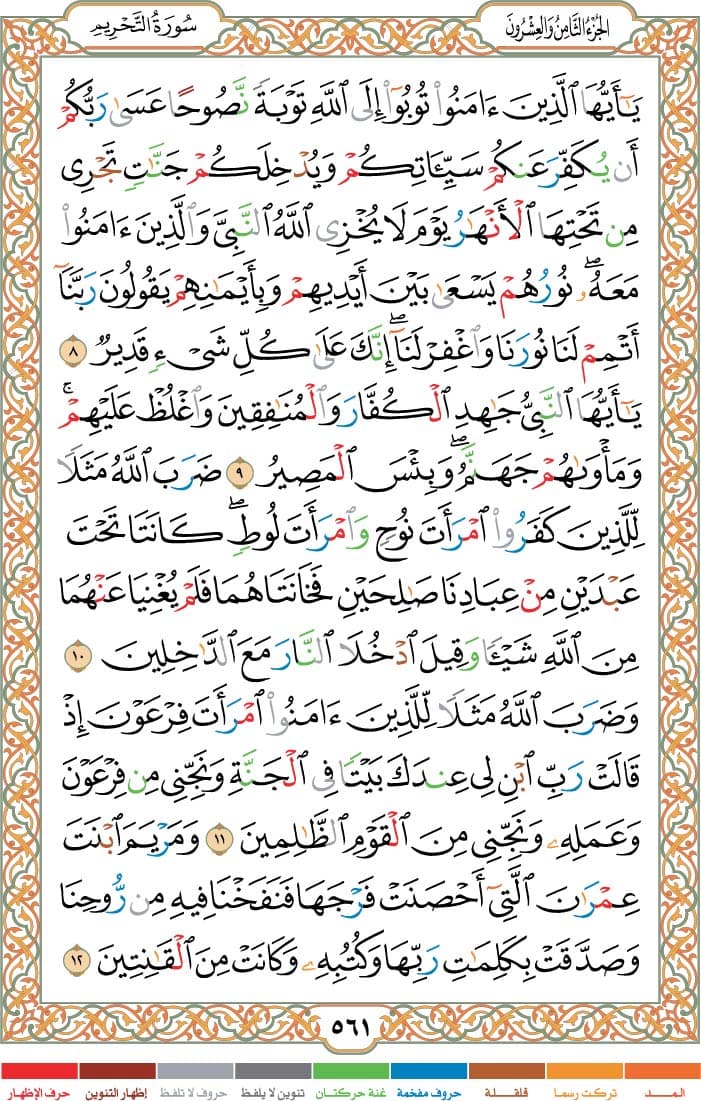 الجُزْءُ الثَّامِنُ وَالعِشْرُونَ
سُورَةُ التَّحْرِيمِ
يَـٰٓأَيُّهَا ٱلَّذِينَ ءَامَنُوا۟ تُوبُوٓا۟ إِلَى ٱللَّهِ تَوْبَةً نَّصُوحًا عَسَىٰ رَبُّكُمْ
أَن يُكَفِّرَ عَنكُمْ سَيِّـَٔاتِكُمْ وَيُدْخِلَكُمْ جَنَّـٰتٍ تَجْرِى
مِن تَحْتِهَا ٱلْأَنْهَـٰرُ يَوْمَ لَا يُخْزِى ٱللَّهُ ٱلنَّبِىَّ وَٱلَّذِينَ ءَامَنُوا۟
مَعَهُۥ ۖ نُورُهُمْ يَسْعَىٰ بَيْنَ أَيْدِيهِمْ وَبِأَيْمَـٰنِهِمْ يَقُولُونَ رَبَّنَآ
أَتْمِمْ لَنَا نُورَنَا وَٱغْفِرْ لَنَآ ۖ إِنَّكَ عَلَىٰ كُلِّ شَىْءٍ قَدِيرٌ ٨
يَـٰٓأَيُّهَا ٱلنَّبِىُّ جَـٰهِدِ ٱلْكُفَّارَ وَٱلْمُنَـٰفِقِينَ وَٱغْلُظْ عَلَيْهِمْ ۚ
وَمَأْوَىٰهُمْ جَهَنَّمُ ۖ وَبِئْسَ ٱلْمَصِيرُ ٩ ضَرَبَ ٱللَّهُ مَثَلًا
لِّلَّذِينَ كَفَرُوا۟ ٱمْرَأَتَ نُوحٍ وَٱمْرَأَتَ لُوطٍ ۖ كَانَتَا تَحْتَ
عَبْدَيْنِ مِنْ عِبَادِنَا صَـٰلِحَيْنِ فَخَانَتَاهُمَا فَلَمْ يُغْنِيَا عَنْهُمَا
مِنَ ٱللَّهِ شَيْـًٔا وَقِيلَ ٱدْخُلَا ٱلنَّارَ مَعَ ٱلدَّٰخِلِينَ ١٠
وَضَرَبَ ٱللَّهُ مَثَلًا لِّلَّذِينَ ءَامَنُوا۟ ٱمْرَأَتَ فِرْعَوْنَ إِذْ
قَالَتْ رَبِّ ٱبْنِ لِى عِندَكَ بَيْتًا فِى ٱلْجَنَّةِ وَنَجِّنِى مِن فِرْعَوْنَ
وَعَمَلِهِۦ وَنَجِّنِى مِنَ ٱلْقَوْمِ ٱلظَّـٰلِمِينَ ١١ وَمَرْيَمَ ٱبْنَتَ
عِمْرَٰنَ ٱلَّتِىٓ أَحْصَنَتْ فَرْجَهَا فَنَفَخْنَا فِيهِ مِن رُّوحِنَا
وَصَدَّقَتْ بِكَلِمَـٰتِ رَبِّهَا وَكُتُبِهِۦ وَكَانَتْ مِنَ ٱلْقَـٰنِتِينَ ١٢
٥٦١
المـــد تركت رسما قلقـــلة حروف مفخمة غنة حركتـان تنوين لا يلفظ حروف لا تلفظ إظهار التنوين حرف الإظهار